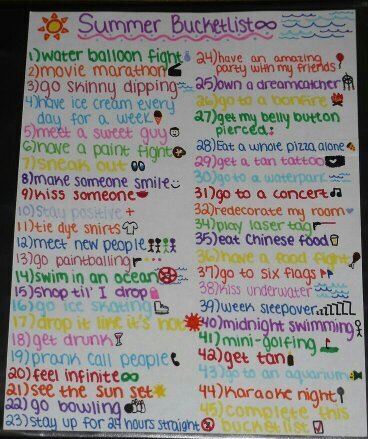 Summer Bucketlist∞
1)water balloon fight
2)movie marathon
3)go skinny dipping
4)have ice cream every
day for a week
5)meet a sweet guy
6)have a paint fight
7)sneak out
8)make someone smile
9)kiss someone
10)stay positive +
11)tie dye shirts
12)meet new people
13)go paintballing
14)swim in an ocean
15)shop til' I drop
16)go ice skating
17)drop it like it's hot
18)get drunk
19)prank call people
20)feel infinite∞
21)see the sun set
22)go bowling
23)stay up for 24 hours straight
24)have an amazing
party with my friends!
25)own a dreamcatcher
26)go to a bonfire
27)get my belly button
pierced
28)Eat a whole pizza alone
29)get a tan tattoo
30)go to a waterpark
31)go to a concert
32)redecorate my room
34)play laser tag
35)eat Chinese food
36)have a food fight
37)go to six flags
38)kiss underwater
39)week sleepover zzzzz
40)midnight swimming
41)mini-golfing
42)get tan
43)go to an aquarium
44)karaoke night
45)complete this
bucketlist